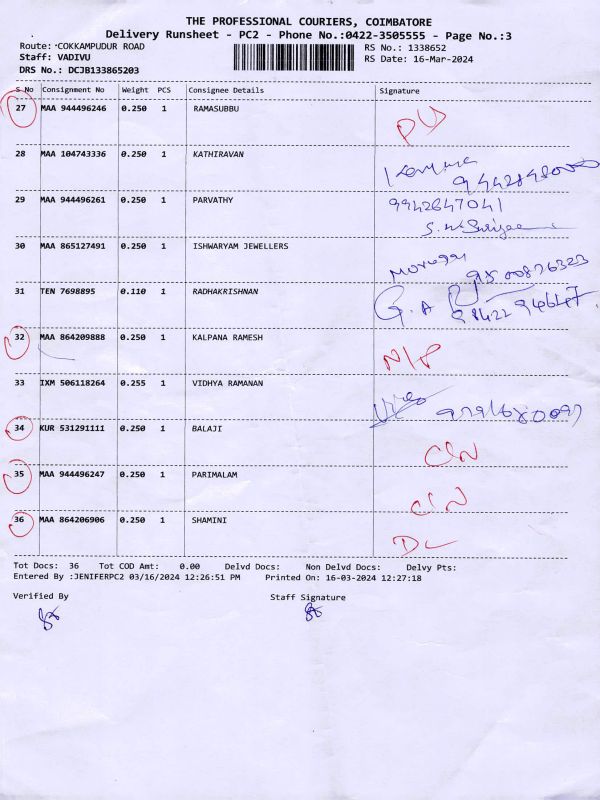 THE PROFESSIONAL COURIERS, COIMBATORE
Delivery Runsheet - PC2 - Phone No.:0422-3505555 - Page No.:3
Route: COKKAMPUDUR ROAD RS No.: 1338652
Staff: VADIVU RS Date: 16-Mar-2024
DRS No.: DCJB133865203
S No Consignment No Weight PCS Consignee Details Signature
27 MAA 944496246 0.250 1 RAMASUBBU
28 MAA 104743336 0.250 1 KATHIRAVAN
29 MAA 944496261 0.250 1 PARVATHY 9942647041
30 MAA 865127491 0.250 1 ISHWARYAM JEWELLERS
31 TEN 7698895 0.110 1 RADHAKRISHNAN
32 MAA 864209888 0.250 1 KALPANA RAMESH N/P
33 IXM 506118264 0.255 1 VIDHYA RAMANAN
34 KUR 531291111 0.250 1 BALAJI
35 MAA 944496247 0.250 1 PARIMALAM
36 MAA 864206906 0.250 1 SHAMINI DL
Tot Docs: 36 Tot COD Amt: 0.00 Delvd Docs: Non Delvd Docs: Delvy Pts:
Entered By :JENIFERPC2 03/16/2024 12:26:51 PM Printed On: 16-03-2024 12:27:18
Verified By Staff Signature